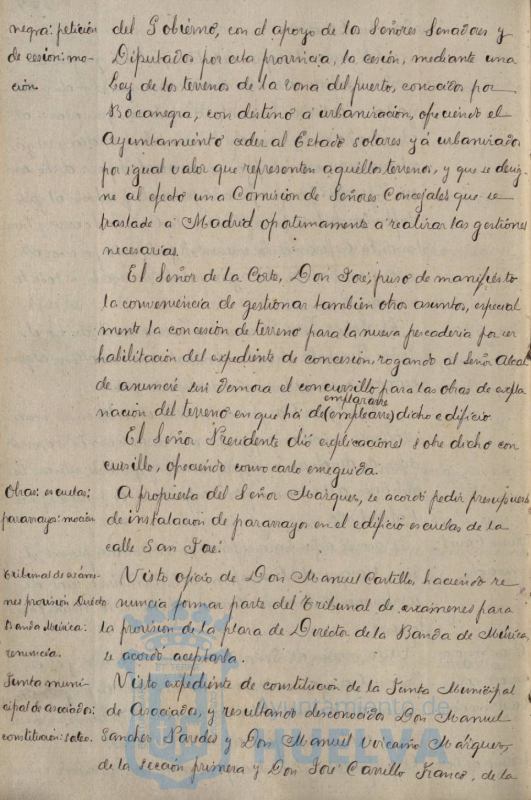 negra: petición
de cesion: mo-
ción.
del Gobierno, con el apoyo de los Señores Senadores y
Diputados por esta provincia, la cesión, mediante una
Ley de los terrenos de la zona del puerto, conocidos por
Bocanegra, con destino á urbanizacion, ofreciendo el
Ayuntamiento ceder al Estado solares yá urbanizados
por igual valor que representen aquellos terrenos, y que se desig-
ne al efecto una Comision de Señores Concejales que se
traslade á Madrid oportunamente á realizar las gestiones
necesarias.
El Señor de la Corte, Don José, puso de manifiesto
la conveniencia de gestionar tambien otros asuntos, especial
mente la concesión de terreno para la nueva pescaderia por
habilitación del expediente de concesión, rogando al Señor Alcal
de anuncie sin demora el concursillo para las obras de expla
emplazarse
nacion del terreno en que há de (emplearse) dicho edificio.
El Señor Presidente dió explicaciones sobre dicho con
cursillo, ofreciendo convocarlo enseguida.
Obras: escuelas:
pararrayos: moción
A propuesta del Señor Marquez, se acordó pedir presupuesto
de instalacion de pararrayos en el edificio escuelas de la
calle San José.
Tribunal de exáme-
nes provisión Director
Banda Música:
renuncia.
Visto oficio de Don Manuel Castillo, haciendo re
nuncia formar parte del Tribunal de exámenes para
la provision de la plaza de Director de la Banda de Música,
se acordó aceptarla.
Junta muni-
cipal de asociados:
constitución: sorteo.
Visto expediente de constitución de la Junta Municipal
de Asociados y resultando desconocidos Don Manuel
Sanchez Paredes y Don Manuel Vizcaino Márquez,
de la sección primera y Don José Carrillo Franco, de la
Ayuntamiento de
HUELVA